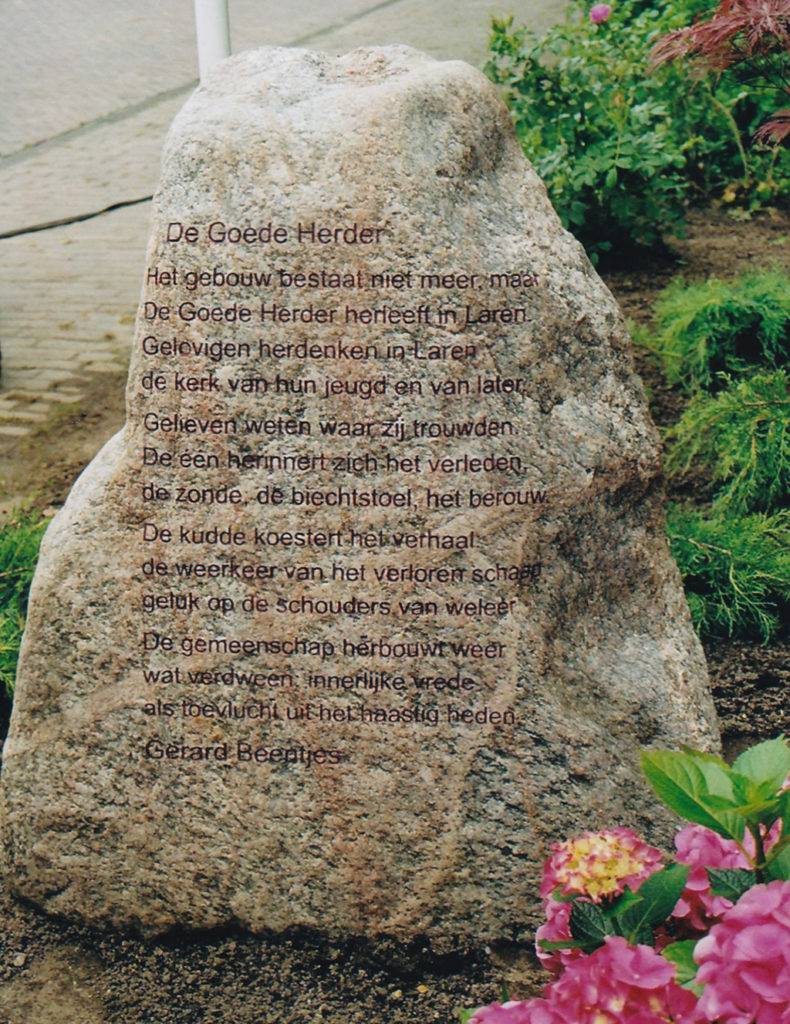 De Goede Herder
Het gebouw bestaat niet meer, maar
De Goede Herder herleeft in Laren.
Gelovigen herdenken in Laren
de kerk van hun jeugd en van later.
Gelieven weten waar zij trouwden.
De één herinnert zich het verleden,
de zonde, de biechtstoel, het berouw.
De kudde koestert het verhaal
de weerkeer van het verloren schaap
geluk op de schouders van weleer
De gemeenschap herbouwt weer
wat verdween, innerlijke vrede
als toevlucht uit het haastig heden.
Gerard Beentjes